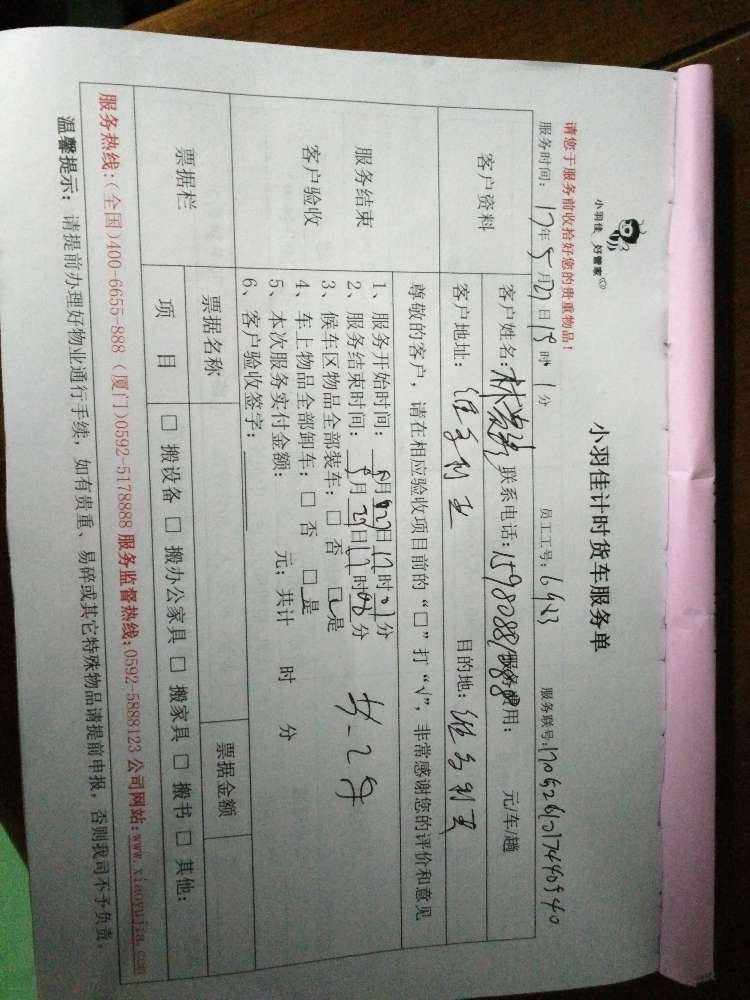 小羽佳 好管家
小羽佳计时货车服务单
请您于服务前收拾好您的贵重物品!
服务时间: 17年5月27日 时1分 员工工号: 服务联号:
客户资料
客户姓名: 联系电话: 服务费用: 元/车/趟
客户地址: 目的地:
服务结束
客户验收
尊敬的客户，请在相应验收项目前的“□”打“√”，非常感谢您的评价和意见
1、服务开始时间: 月 日17时 分
2、服务结束时间: 月 日17时 分
3、候车区物品全部装车: □ 否 □ 是
4、车上物品全部卸车: □ 否 □ 是
5、本次服务实付金额: 元; 共计 时 分
6、客户验收签字:
票据栏
票据名称 票据金额
项 目 □ 搬设备 □ 搬办公家具 □ 搬家具 □ 搬书 □ 其他:
服务热线:(全国)400-6655-888 (厦门)0592-5178888 服务监督热线:0592-5888123 公司网站:www.xiaoyujia.com
温馨提示: 请提前办理好物业通行手续，如有贵重、易碎或其它特殊物品请提前申报，否则我司不予负责。